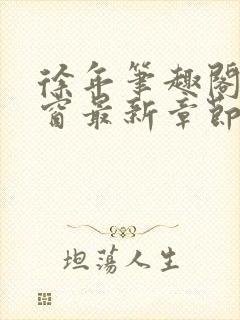 徐年笔趣阁
窗最新章節
坦荡人生